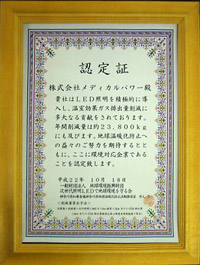 認定証
株式会社メディカルパワー殿
貴社はLED照明を積極的に導
入し、温室効果ガス排出量削減に
多大なる貢献をされております。
年間削減量は約23,800kg
にも及びます。地球温暖化防止へ
の益々のご努力を期待するとと
もに、ここに環境対応企業である
ことを認定致します。
平成22年 10月 18日
一般社団法人 地球環境
次世代照明LEDで地球環境を守る会